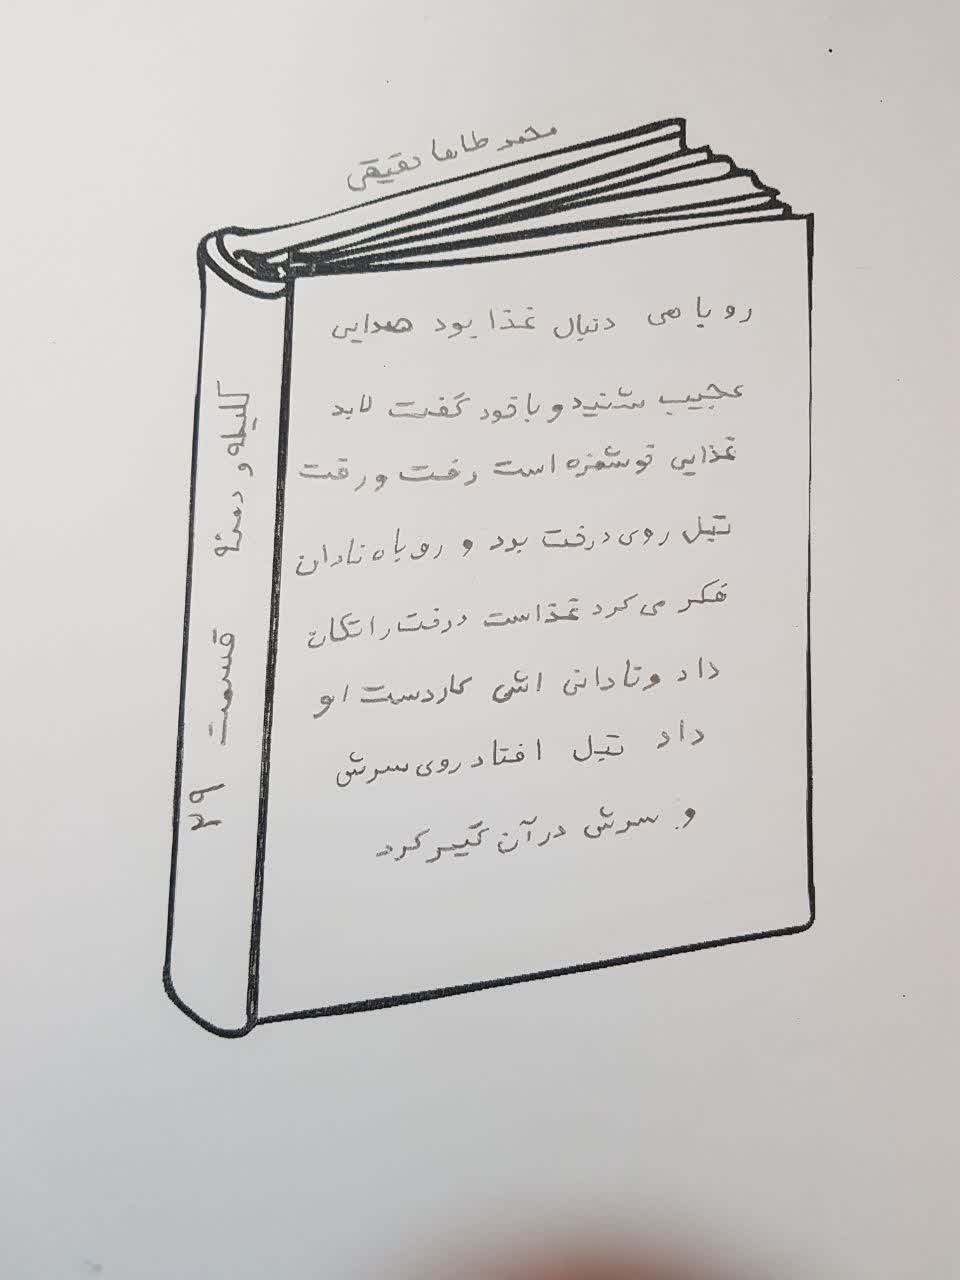 محمد طاها حقیقی
روباهی دنبال غذا بود صدایی
عجیب شنید و با خود گفت لابد
غذایی خوشمزه است رفت و رفت
تبل روی درخت بود و روباه نادان
فکر می کرد غذا است درخت را تکان
داد و نادانی اش کار دست او
داد تبل افتاد روی سرش
و سرش در آن گیر کرد
کلیله و دمنه قسمت ۲۹